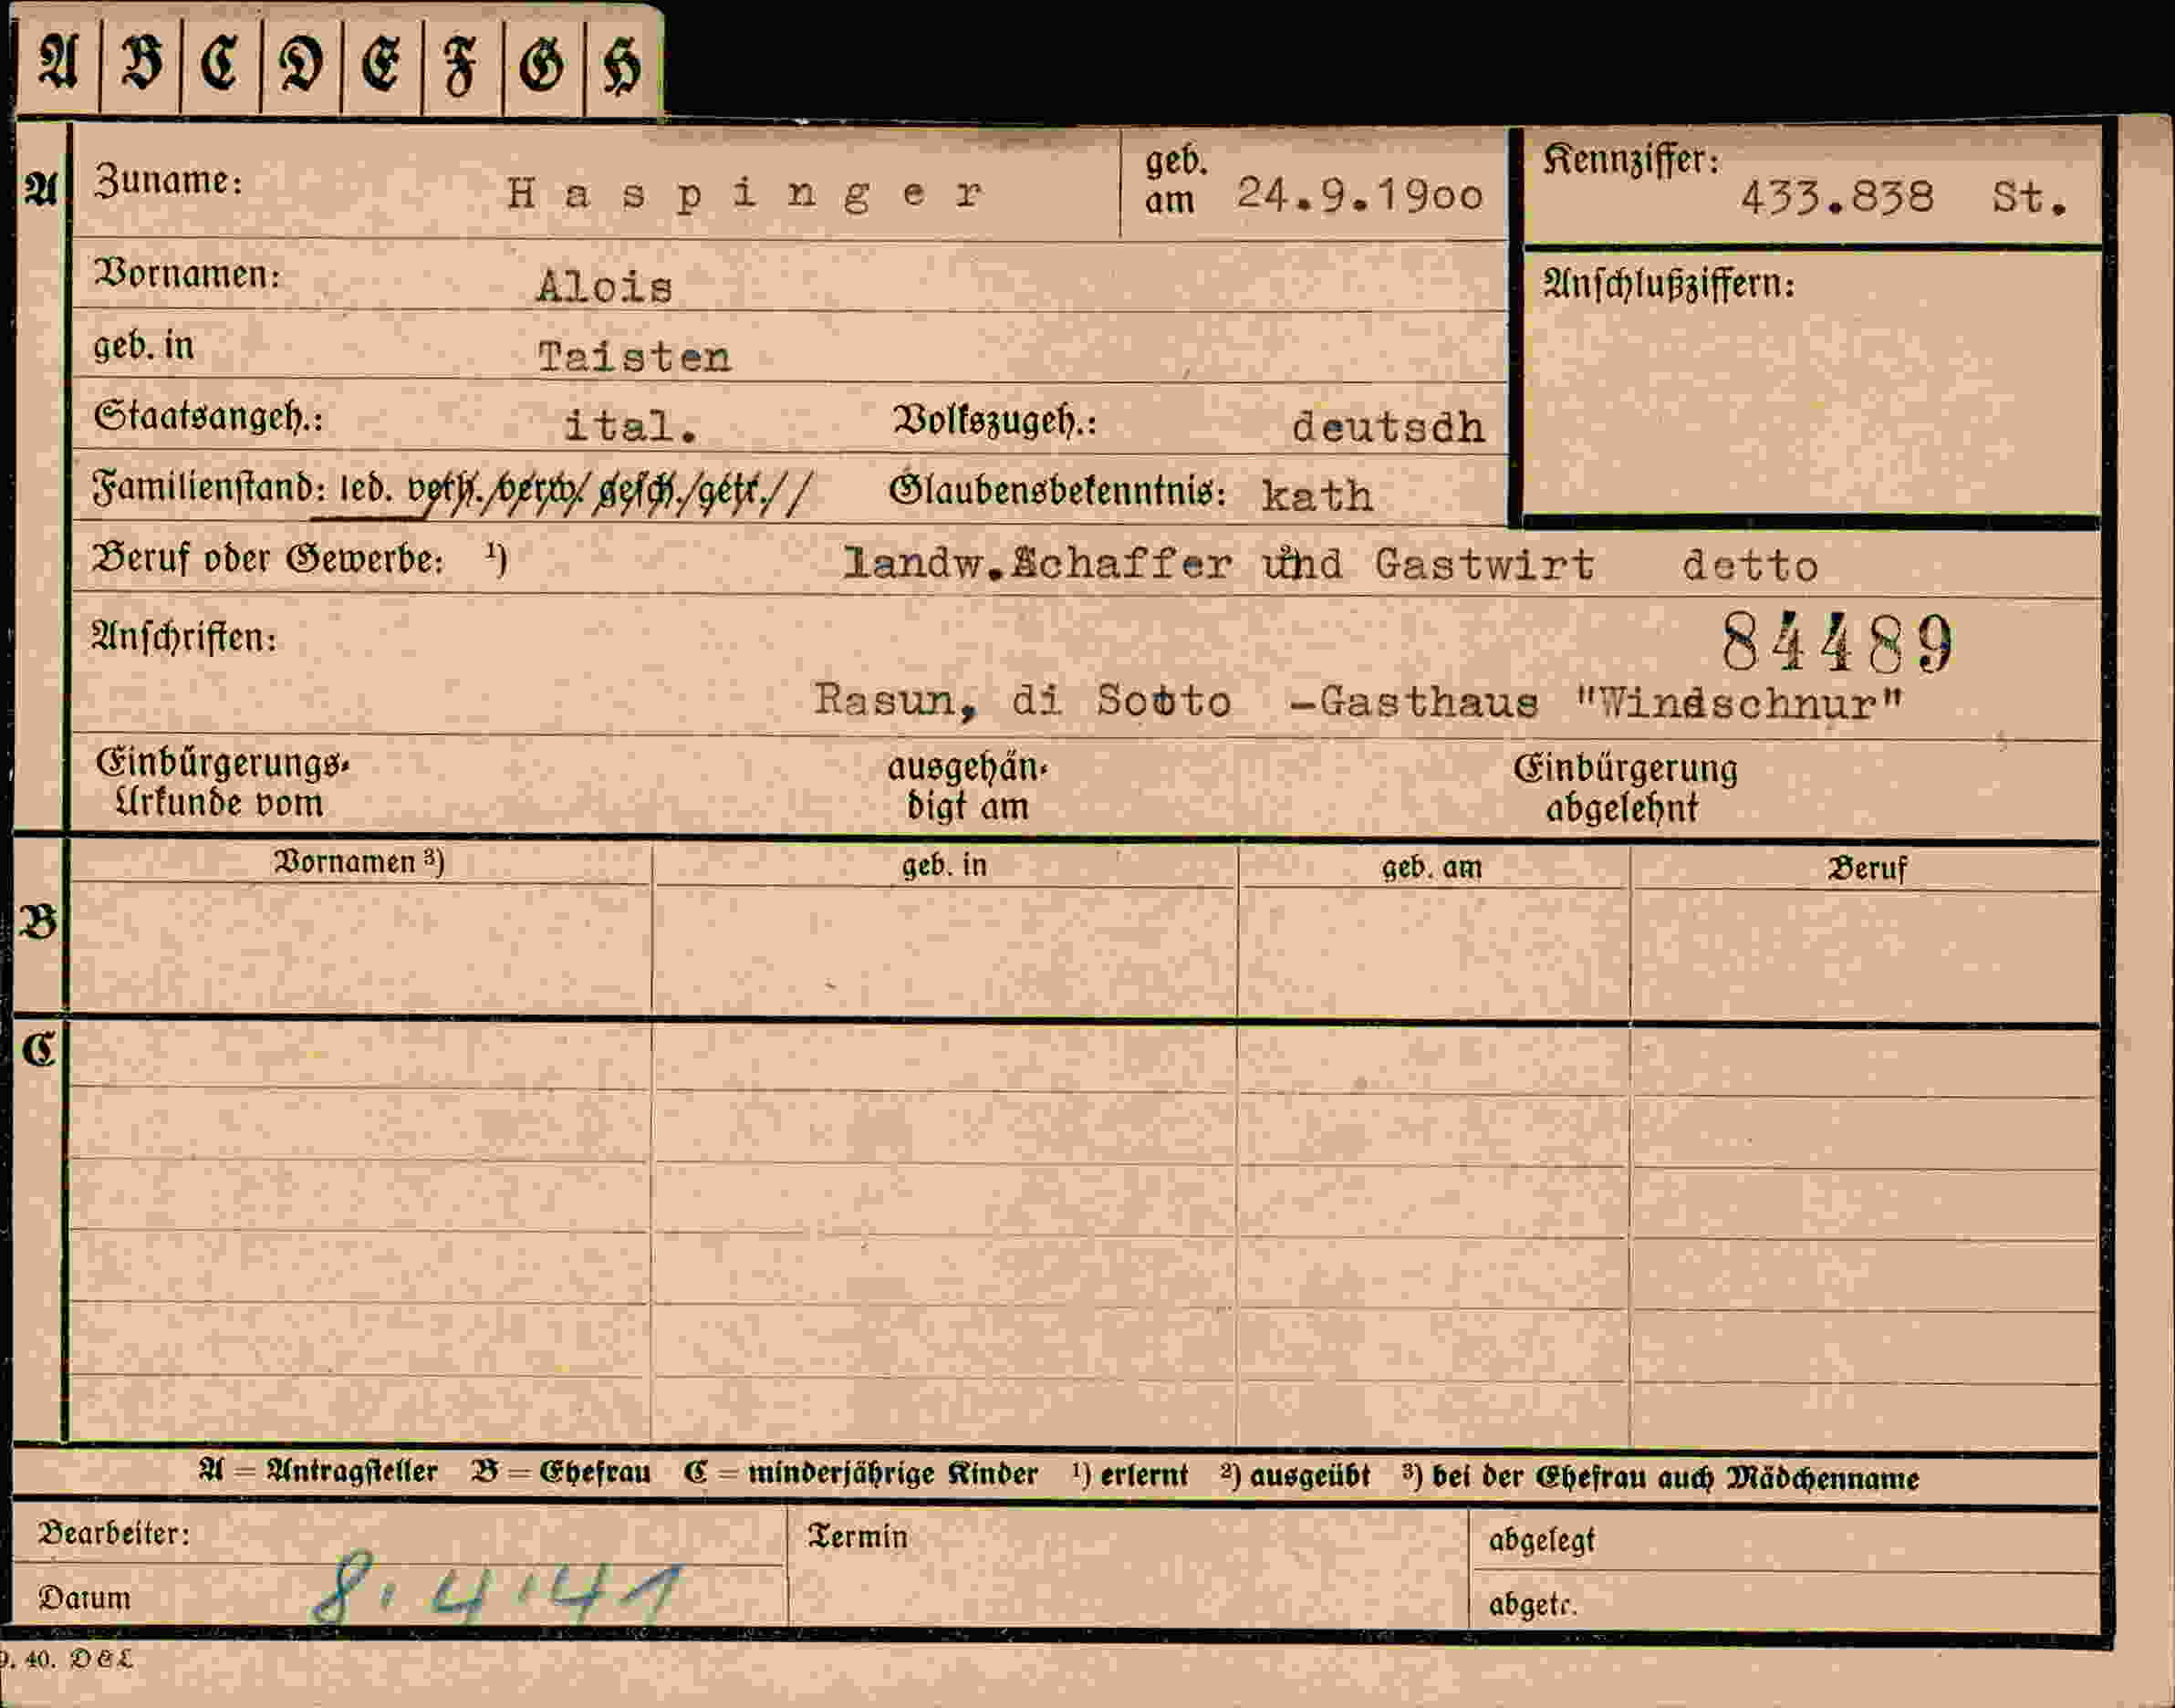 A B C D E F G H
A Zuname: Haspinger geb. am 24.9.1900 Kennziffer: 433.838 St.
Vornamen: Alois Anschlußziffern:
geb. in Taisten
Staatsangeh.: ital. Volkszugeh.: deutsdh
Familienstand: led. verh./verw./gesch./getr.// Glaubensbekenntnis: kath
Beruf oder Gewerbe: ¹) landw.Schaffer und Gastwirt detto
Anschriften: 84489
Rasun, di Sotto -Gasthaus "Windschnur"
Einbürgerungs- ausgehän- Einbürgerung
Urkunde vom digt am abgelehnt
Vornamen ³) geb. in geb. am Beruf
B
C
A = Antragsteller B = Ehefrau C = minderjährige Kinder ¹) erlernt ²) ausgeübt ³) bei der Ehefrau auch Mädchenname
Bearbeiter: Termin abgelegt
Datum 8.4.41 abgetr.
9. 40. D & L